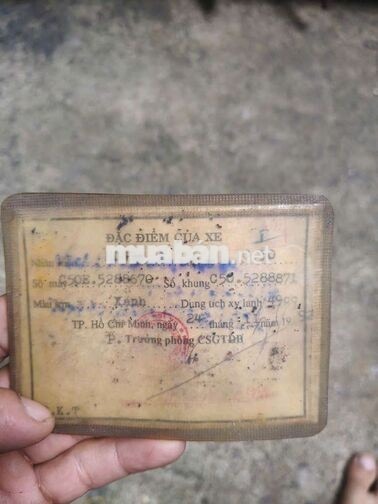 muaban.net
ĐẶC ĐIỂM CỦA XE
Số máy C50E.5288670 Số khung C50.5288871
Màu sơn Xanh Dung tích xy lanh
TP. Hồ Chí Minh, ngày 24 tháng năm 19
P. Trưởng phòng CSGTĐB
.K.T